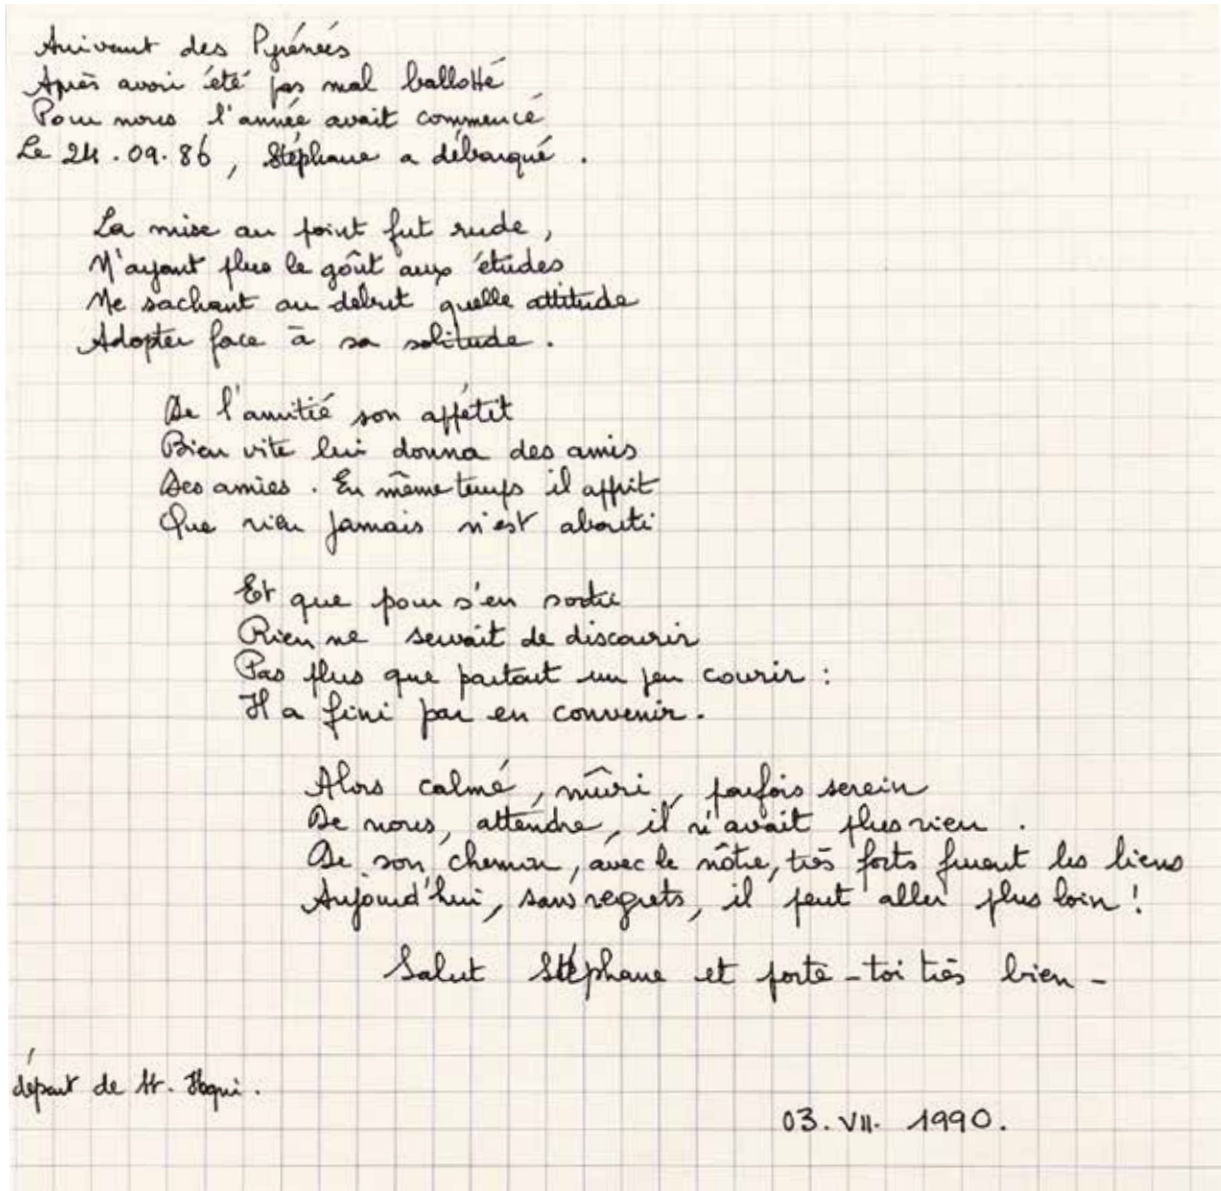 Arrivant des Pyrénées
Après avoir été pas mal ballotté
Pour nous l'année avait commencé
Le 24.09.86, Stéphane a débarqué.
La mise au point fut rude,
N'ayant plus le goût aux études
Ne sachant au début quelle attitude
Adopter face à sa solitude.
De l'amitié son appétit
Bien vite lui donna des amis
Des amies. En même temps il apprit
Que rien jamais n'est abouti
Et que pour s'en sortir
Rien ne servait de discourir
Pas plus que partout un peu courir :
Il a fini par en convenir.
Alors calmé, mûri, parfois serein
De nous, attendre, il n'avait plus rien.
De son chemin, avec le nôtre, très forts furent les liens
Aujourd'hui, sans regrets, il peut aller plus loin !
Salut Stéphane et porte-toi très bien -
départ de St.
03.VII. 1990.